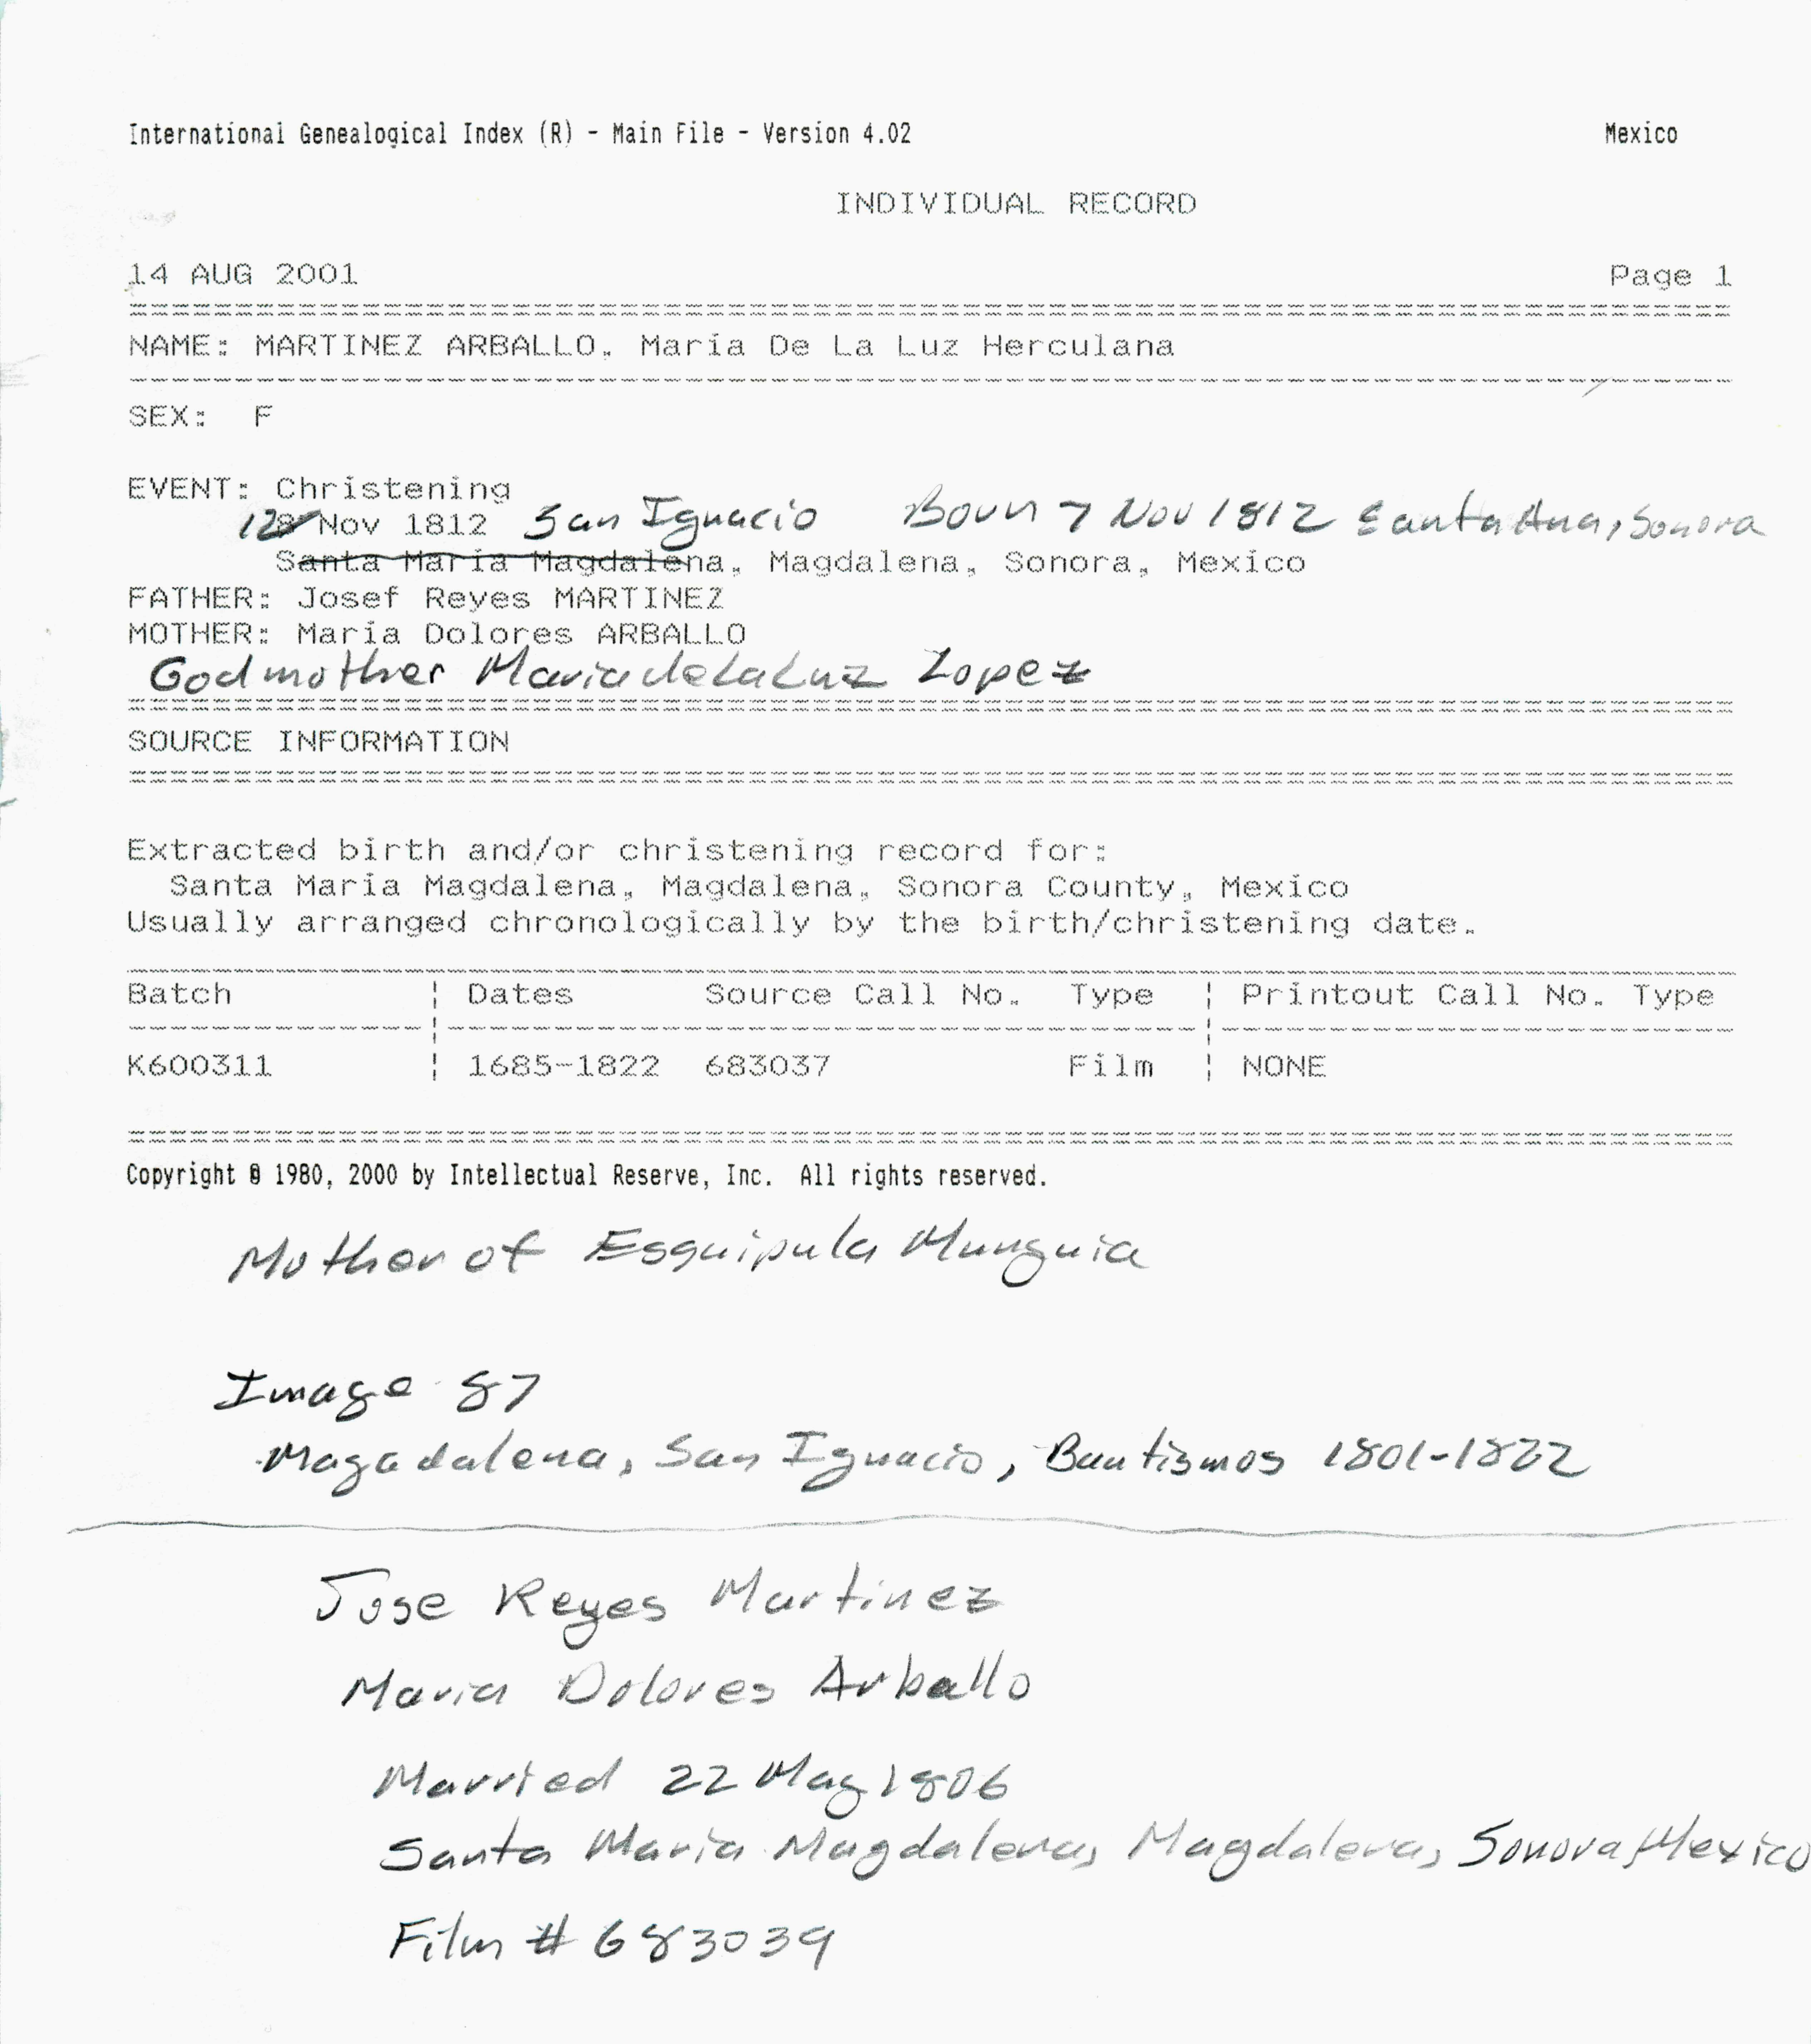 International Genealogical Index (R) - Main File - Version 4.02 Mexico
INDIVIDUAL RECORD
14 AUG 2001 Page 1
NAME: MARTINEZ ARBALLO, Maria De La Luz Herculana
SEX: F
EVENT: Christening
12 8 Nov 1812 San Ignacio Born 7 Nov 1812 Santa Ana, Sonora
Santa Maria Magdalena, Magdalena, Sonora, Mexico
FATHER: Josef Reyes MARTINEZ
MOTHER: Maria Dolores ARBALLO
Godmother Maria de la Luz Lopez
SOURCE INFORMATION
Extracted birth and/or christening record for:
Santa Maria Magdalena, Magdalena, Sonora County, Mexico
Usually arranged chronologically by the birth/christening date.
Batch | Dates Source Call No. Type | Printout Call No. Type
K600311 | 1685-1822 683037 Film | NONE
Copyright © 1980, 2000 by Intellectual Reserve, Inc. All rights reserved.
Mother of Esquipula Munguia
Image 87
Magadalena, San Ignacio, Bautismos 1801-1822
Jose Reyes Martinez
Maria Dolores Arballo
Married 22 May 1806
Santa Maria Magdalena, Magdalena, Sonora, Mexico
Film # 683039